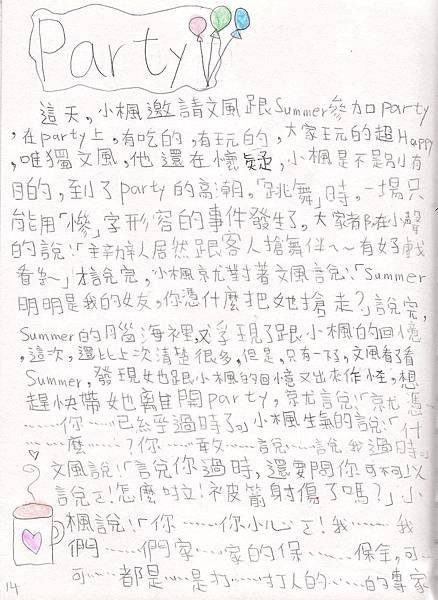 Party
這天，小楓邀請文風跟Summer參加party
，在party上，有吃的，有玩的，大家玩的超Happy
，唯獨文風，他還在懷疑，小楓是不是別有
目的，到了party的高潮，「跳舞」時，一場只
能用「慘」字形容的事件發生了，大家都在小聲
的說：「主辦人居然跟客人搶舞伴~~有好戲
看囉~」才說完，小楓就對著文風說：「Summer
明明是我的女友，你憑什麼把她搶走？」說完，
Summer的腦海裡，又浮現了跟小楓的回憶
，這次，還比上次清楚很多，但是，只有一下，文風看了看
Summer，發現她跟小楓的回憶又出來作怪，想
趕快帶她離開party，就說：「就憑
……你……已經過時了」小楓生氣的說：「什
……麼……？你……敢……說……說我過時」
文風說：「說你過時，還要問你可不可以
說ㄛ！怎麼啦！被箭射傷了嗎？」小
楓說：「你……你小心ㄛ！我……我
們……們家……家的保……保全，可
可……都是……是打……打人的……的專家
14